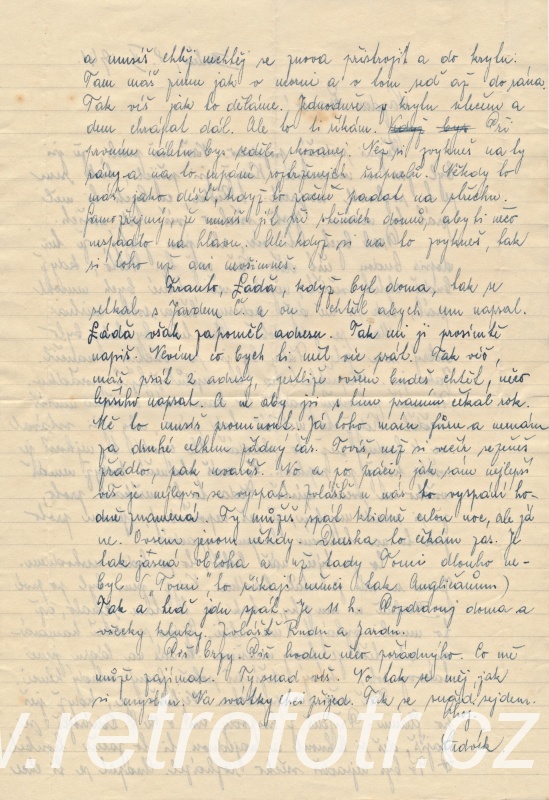 a musíš chtěj nechtěj se znova přistrojit a do krytu.
Tam máš zimu jak v morni a v tom seď až do rána.
Tak víš jak to děláme. Jednoduše z krytu utečem a
dem chrápat dál. Ale to ti říkám. Když bys Při
prvním náletu bys seděl schovanej. Než si zvykneš na ty
rány a na to dopadání roztrženejch šrapnelů. Někdy to
máš jako déšť, když to začne padat na střechu.
Samozřejmý, že musíš jít při stěnách domů, aby ti něco
nespadlo na hlavu. Ale když si na to zvykneš, tak
si toho už ani nevšimneš.
Franto, Láďa, když byl doma, tak se
setkal s Jardem Č. a on chtěl abych mu napsal.
Láďa však zapoměl adresu. Tak mi ji prosímtě
napiš. Nevím co bych ti měl víc psát. Tak víš,
máš psát 2 adresy, jestliže ovšem budeš chtěl, něco
lepšího napsat. A ne aby jsi s tím psaním čekal rok.
Mě to musíš prominout. Já toho mám fůru a nemám
za druhé celkem žádný čas. Totiž než si večír sejmeš
prádlo, pak navaříš. No a po práci, jak sám nejlepší
víš je nejlepší se vyspat. Zvlášť u nás to vyspání ho-
dně znamená. Ty můžeš spát klidně celou noc, ale já
ne. Ovšem jenom někdy. Dneska to čekám zas. Je
tak jasná obloha a už tady Tomi dlouho ne-
byl ("Tomi" to říkají němci tak Angličanům)
Tak a teď jdu spát. Je 11 h. Pozdravuj doma a
všecky kluky. Zvlášť Rudu a Jardu.
Piš brzy. Piš hodně něco pořádnýho. Co mě
může zajímat. Ty snad víš. No tak se měj jak
si myslím. Na svátky chci přijed. Tak se snad sejdem.
Ahoj
Luděk
www.retrofotr.cz